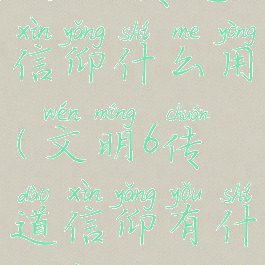 xìn yǎng shí me yòng
信仰什么用
wén míng chuán
(文明6传
dào xìn yǎng yǒu shí
道信仰有什